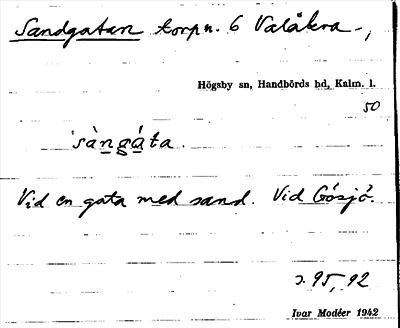 Sandgatan torp n. 6 Valåkra -,
Högsby sn, Handbörds hd, Kalm. l.
50
sàngáta.
Vid en gata med sand. Vid Gösjö.
s. 95, 92
Ivar Modéer 1942